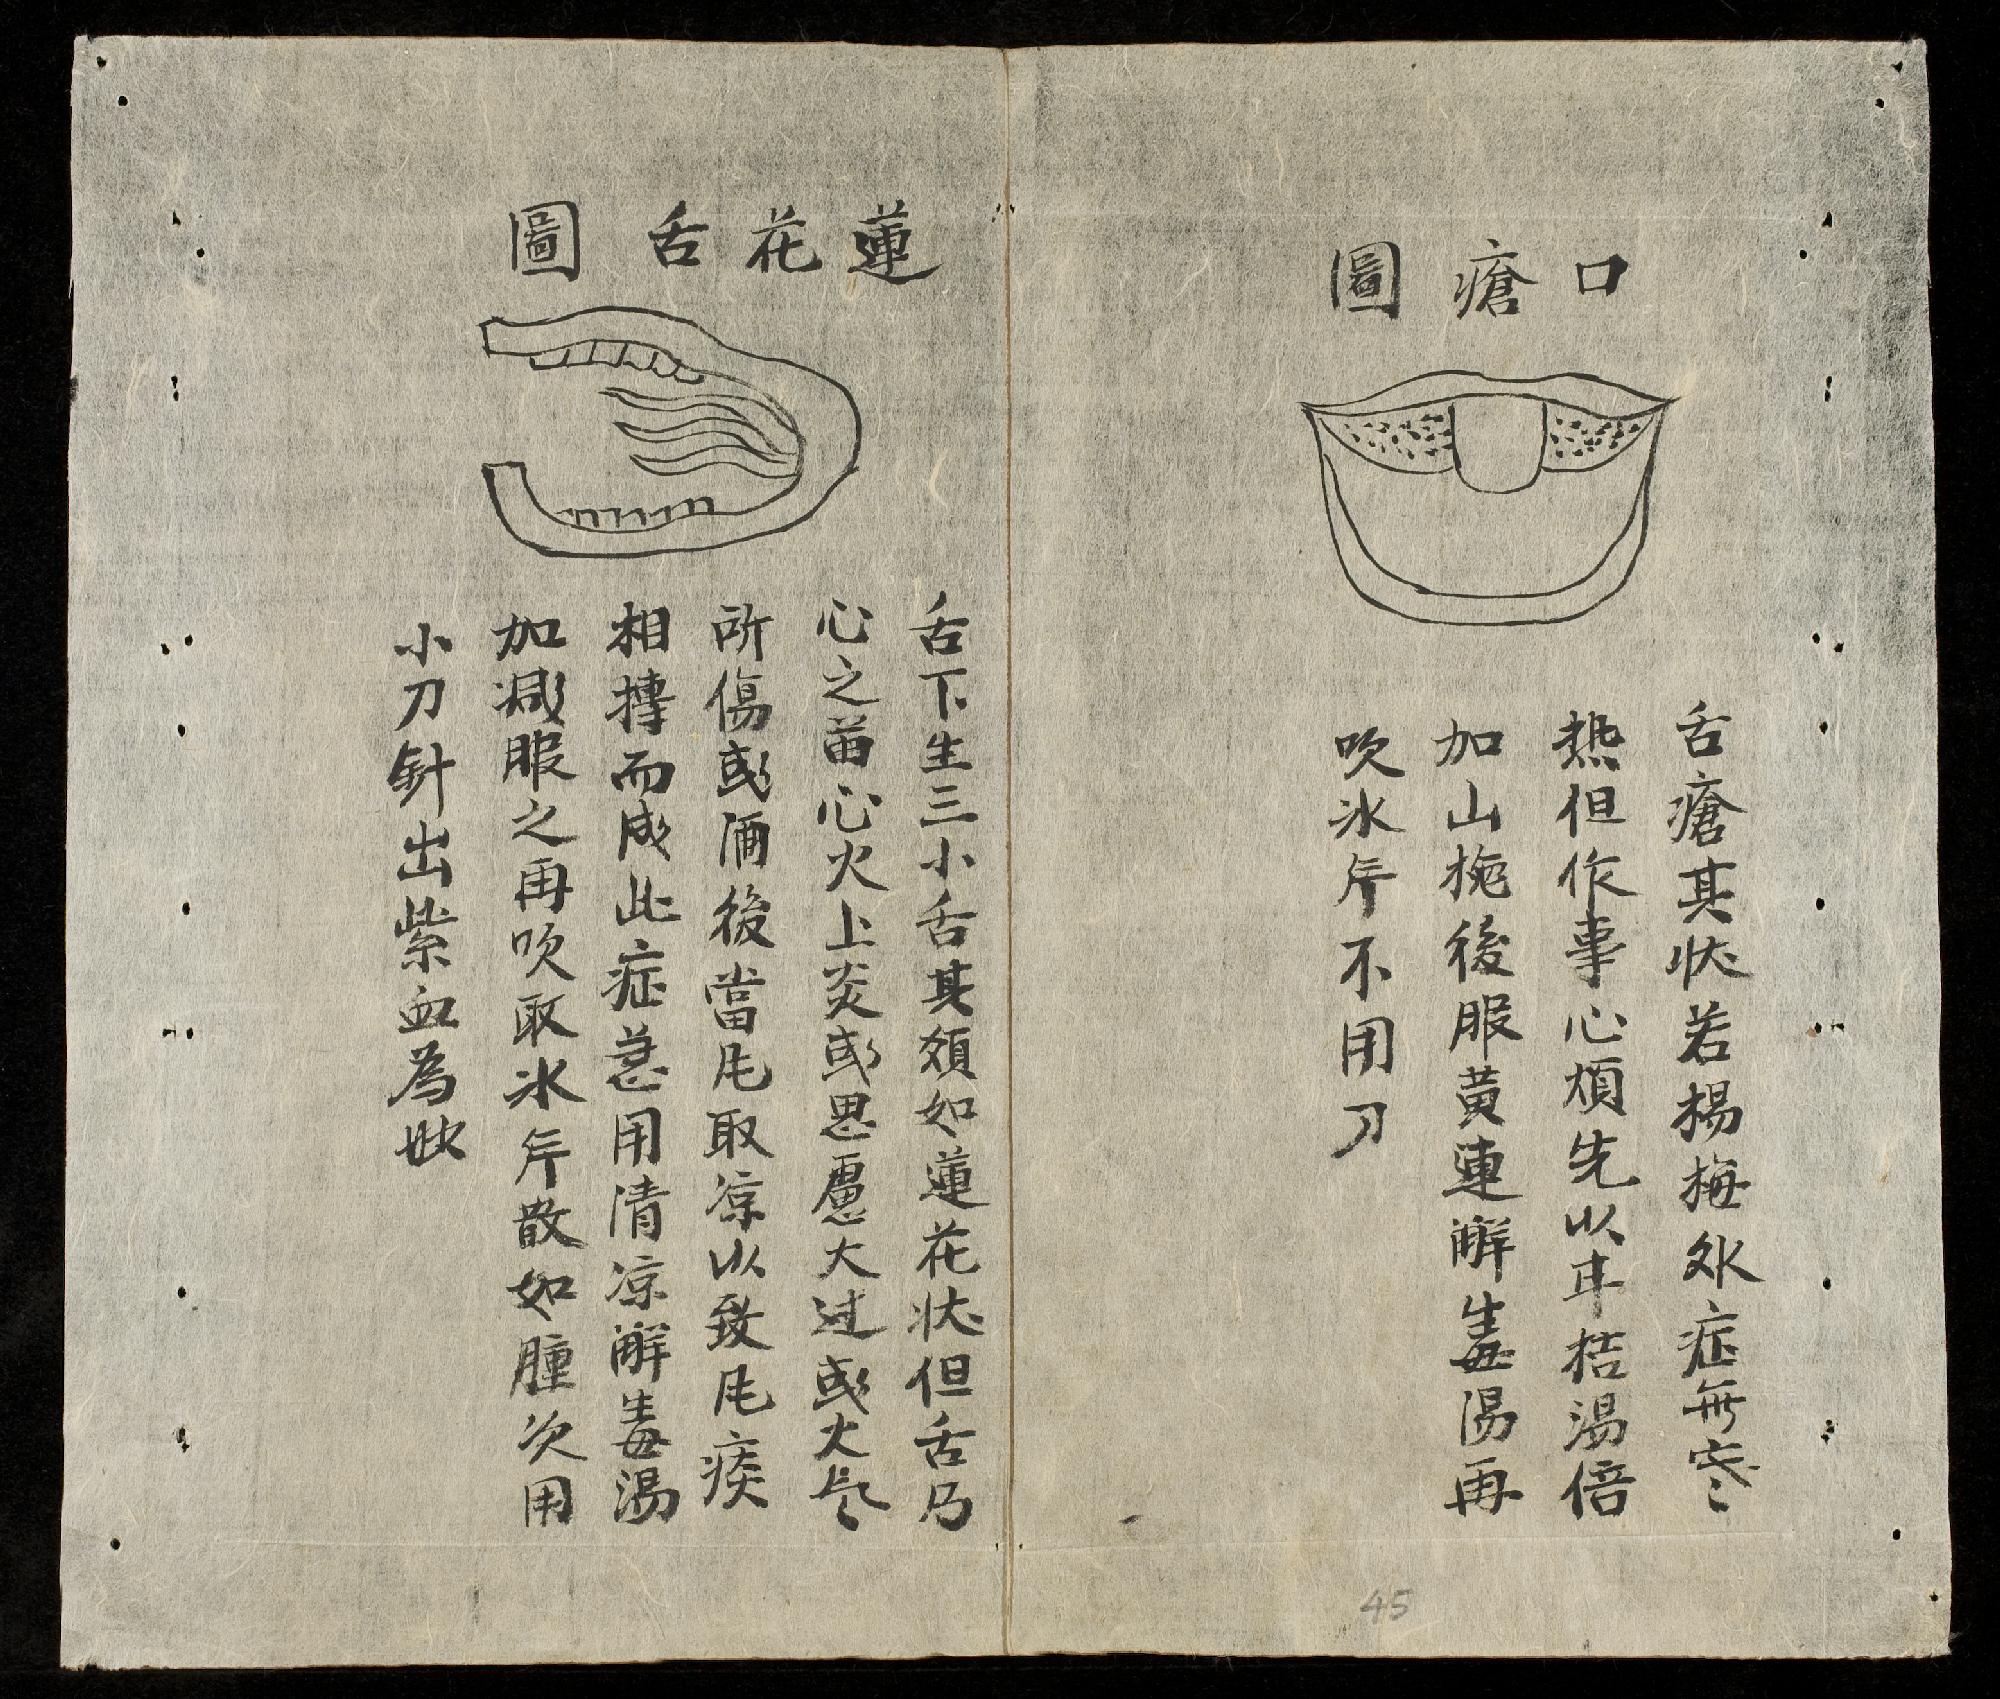 口瘡圖
舌瘡其狀若楊梅外症無寒
热但作事心煩先以平桔湯倍
加山梔後服黄連解毒湯再
吹冰片不用刀
蓮花舌圖
舌下生三小舌其頭如蓮花狀但舌乃
心之苗心火上炎或思慮大过或大氣
所傷或酒後當風取凉以致風痰
相摶而成此症急用清凉解毒湯
加减服之再吹取冰片散如腫次用
小刀針出紫血為妙
45